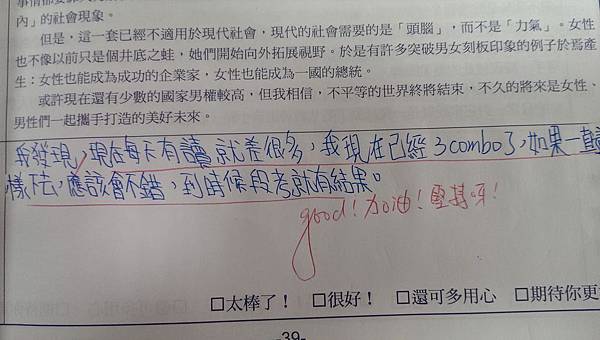 內」的社會現象。
但是,這一套已經不適用於現代社會,現代的社會需要的是「頭腦」,而不是「力氣」。女性
也不像以前只是個井底之蛙,她們開始向外拓展視野。於是有許多突破男女刻板印象的例子於焉產
生:女性也能成為成功的企業家,女性也能成為一國的總統。
或許現在還有少數的國家男權較高,但我相信,不平等的世界終將結束,不久的將來是女性、
男性們一起攜手打造的美好未來。
我發現,現在每天有讀就差很多,我現在已經3combo了,如果一直
樣下去,應該會不錯,到時候段考就有結果。
good!加油!堅持呀!
□太棒了! □很好! □還可多用心 □期待你更
-39-